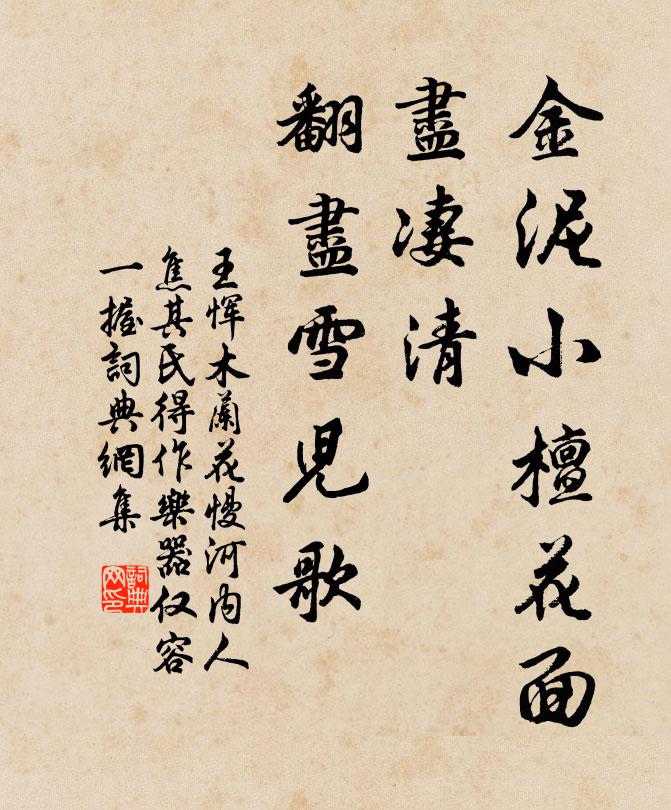 金泥小檀花面
盡凄清
翻盡雪兒歌
王惲木蘭花慢河内人
焦其氏得作樂器仅容
一握詞典網集
詞典
网印